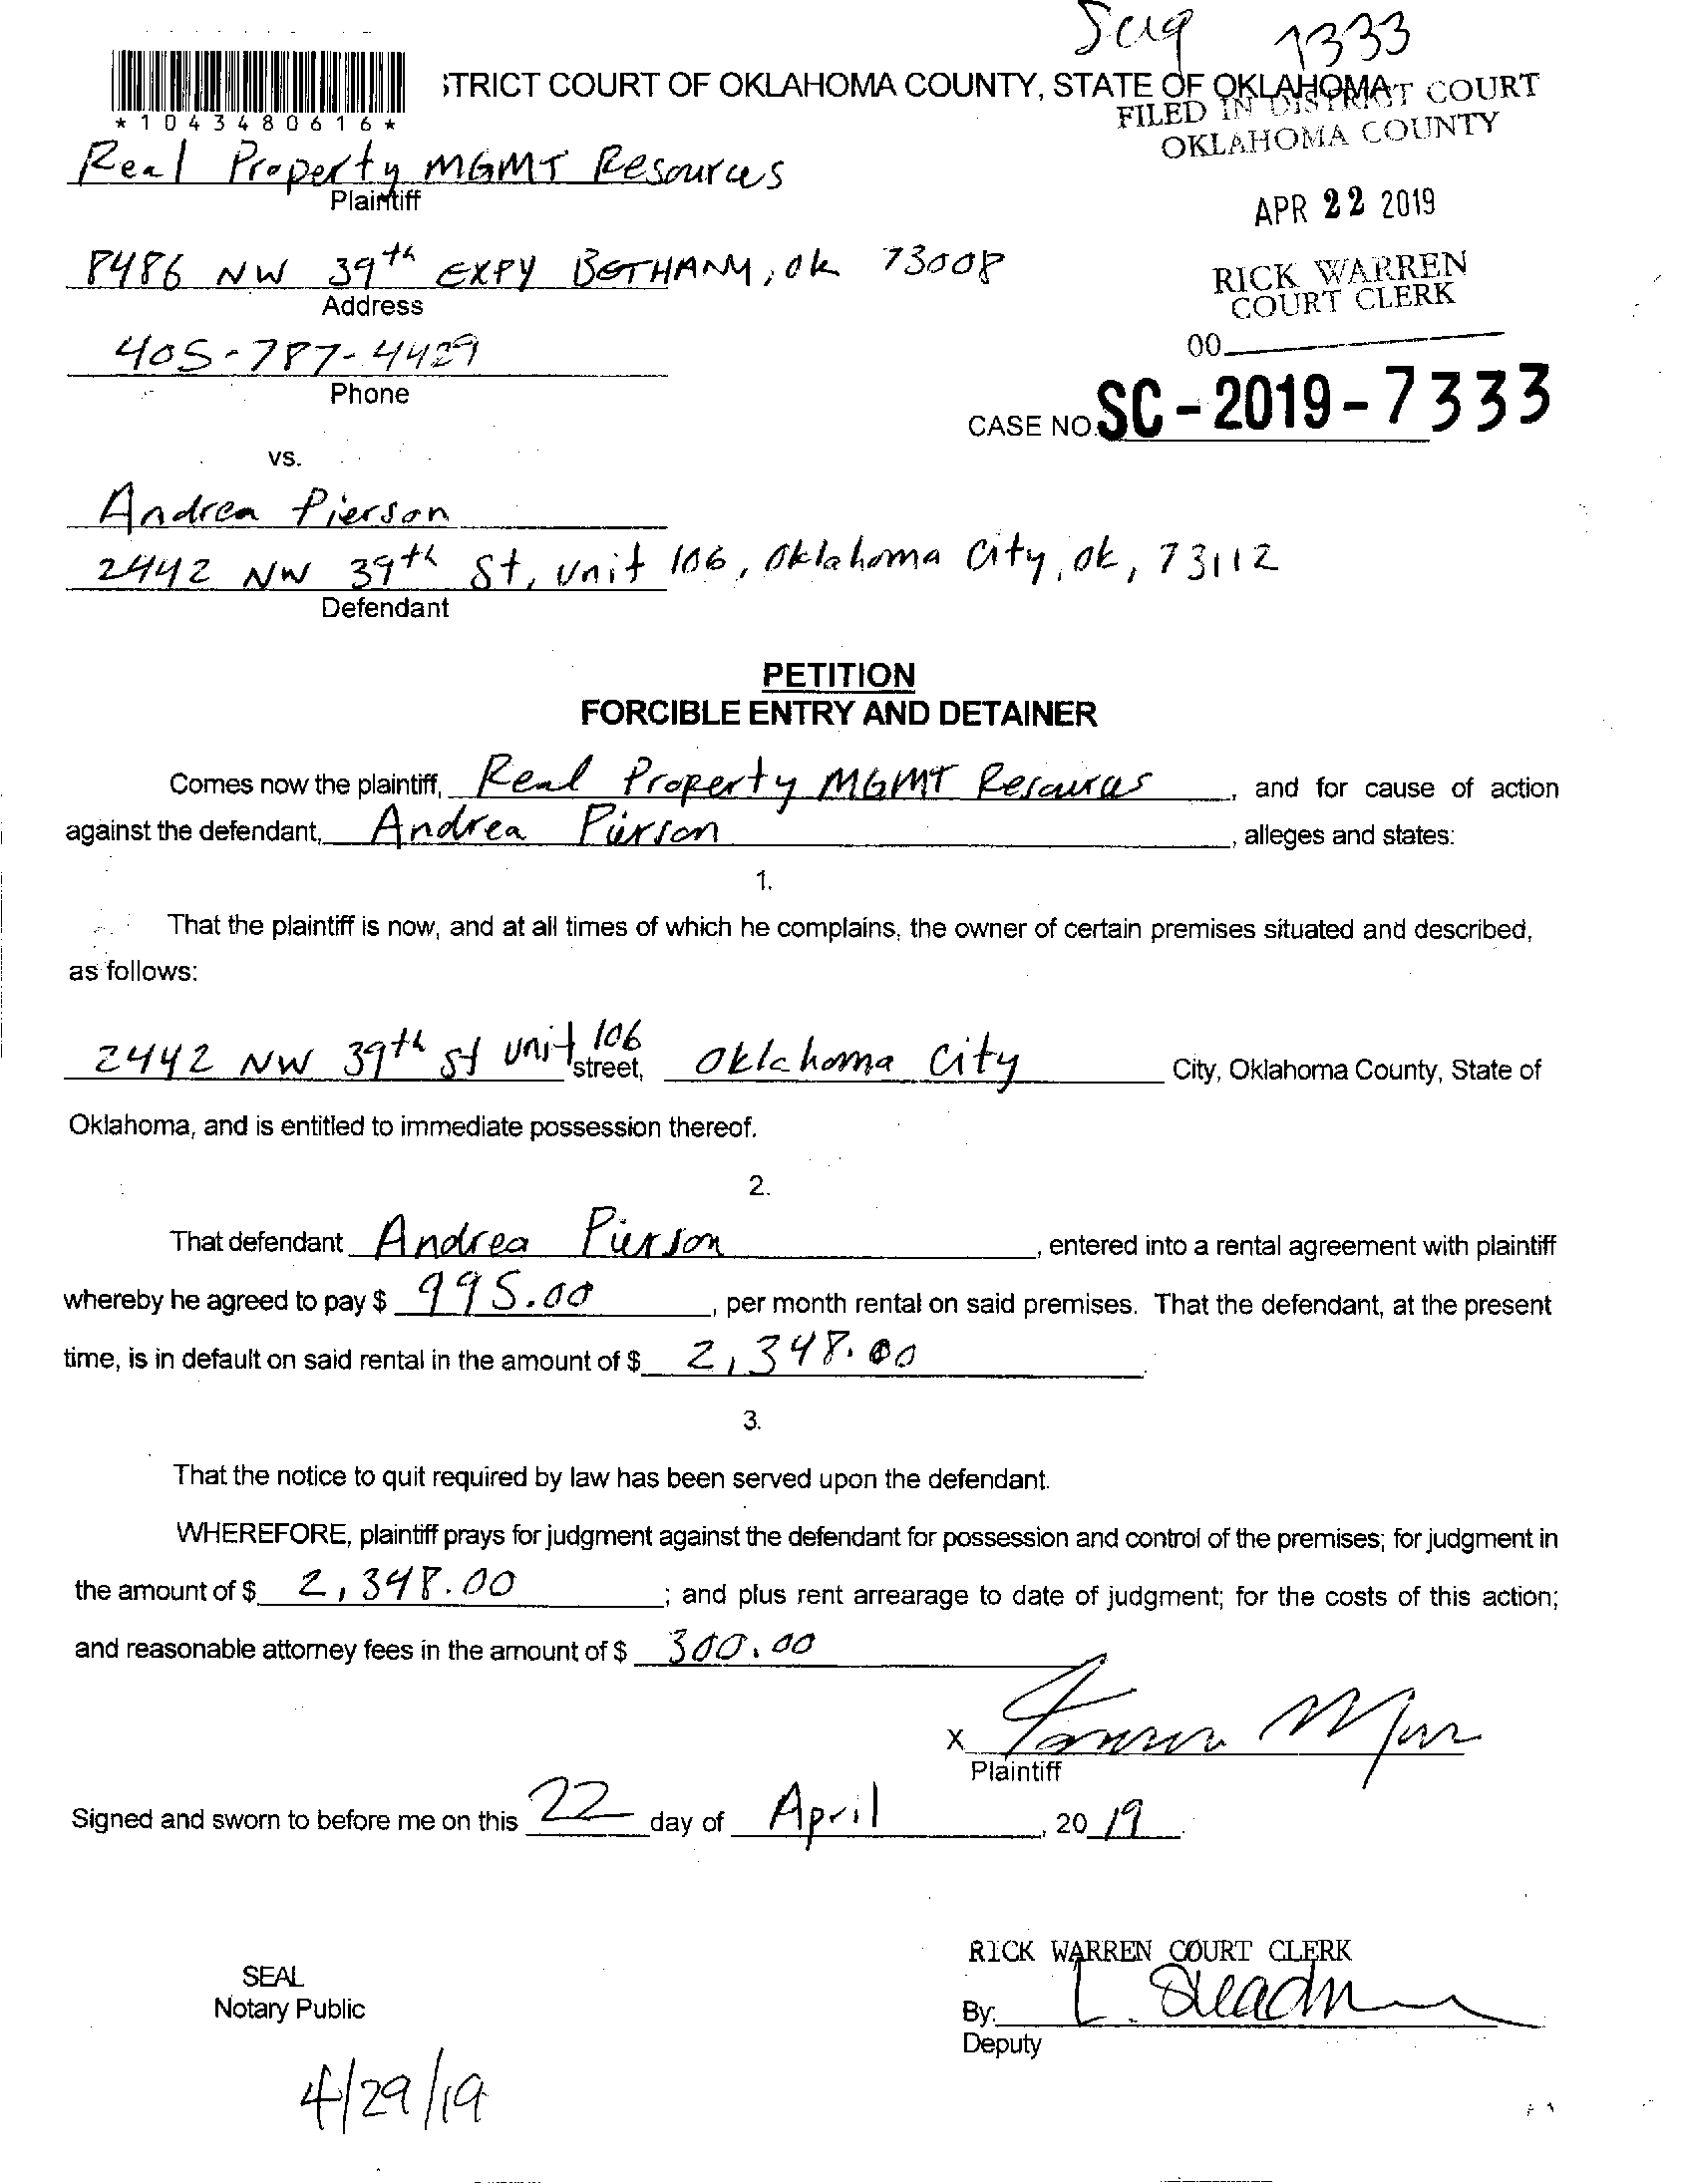 7333
TRICT COURT OF OKLAHOMA COUNTY, STATE OF OKLAHOMA
FILED IN DISTRICT COURT
OKLAHOMA COUNTY
*1043480616*
Real Property MGMT Resources
Plaintiff
APR 22 2019
8486 NW 39th EXPY BETHANY, OK 73008
Address
RICK WARREN
COURT CLERK
405-787-4429
Phone
00
CASE NO. SC-2019-7333
vs.
Andrea Pierson
2442 NW 39th St, Unit 106, Oklahoma City, OK, 73112
Defendant
PETITION
FORCIBLE ENTRY AND DETAINER
Comes now the plaintiff, Real Property MGMT Resources, and for cause of action
against the defendant, Andrea Pierson, alleges and states:
1.
That the plaintiff is now, and at all times of which he complains, the owner of certain premises situated and described,
as follows:
2442 NW 39th St Unit 106 street, Oklahoma City City, Oklahoma County, State of
Oklahoma, and is entitled to immediate possession thereof.
2.
That defendant Andrea Pierson, entered into a rental agreement with plaintiff
whereby he agreed to pay $ 995.00, per month rental on said premises. That the defendant, at the present
time, is in default on said rental in the amount of $ 2,348.00.
3.
That the notice to quit required by law has been served upon the defendant.
WHEREFORE, plaintiff prays for judgment against the defendant for possession and control of the premises; for judgment in
the amount of $ 2,348.00; and plus rent arrearage to date of judgment; for the costs of this action;
and reasonable attorney fees in the amount of $ 300.00
X
Plaintiff
Signed and sworn to before me on this 22 day of April, 20 19.
RICK WARREN COURT CLERK
SEAL
Notary Public
By:
Deputy
4/29/19